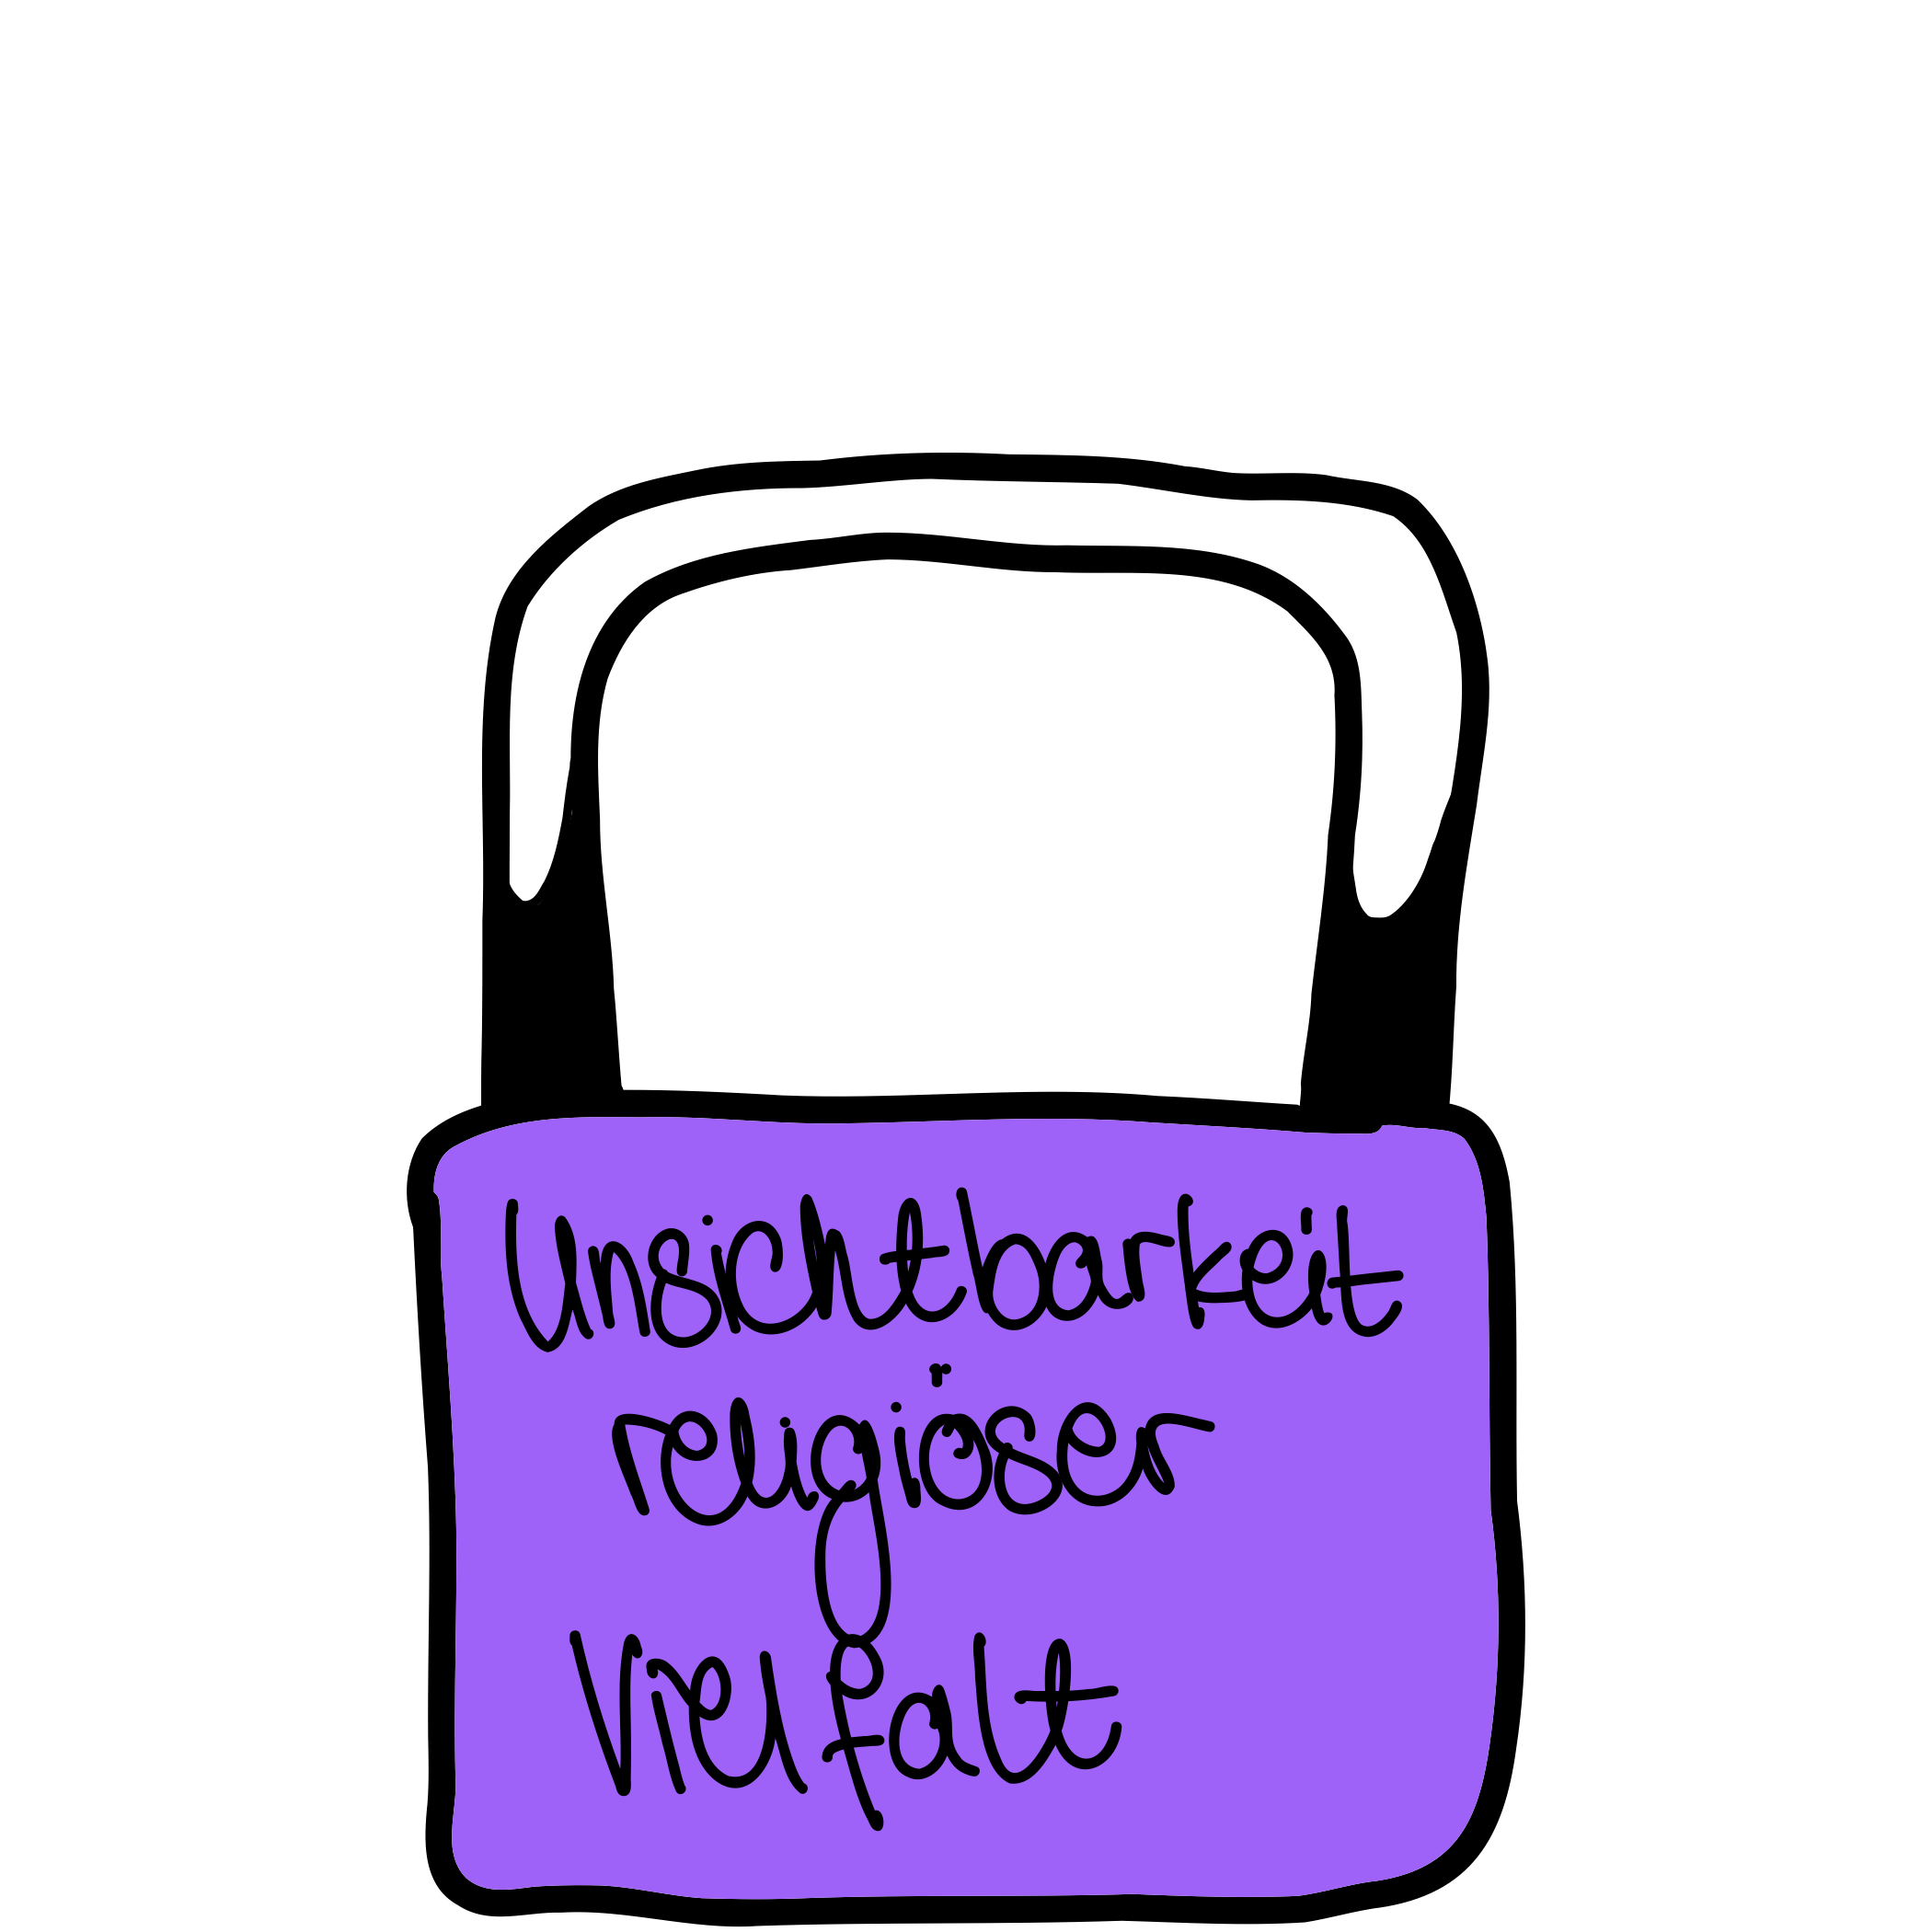 Unsichtbarkeit
religiöser
Vielfalt